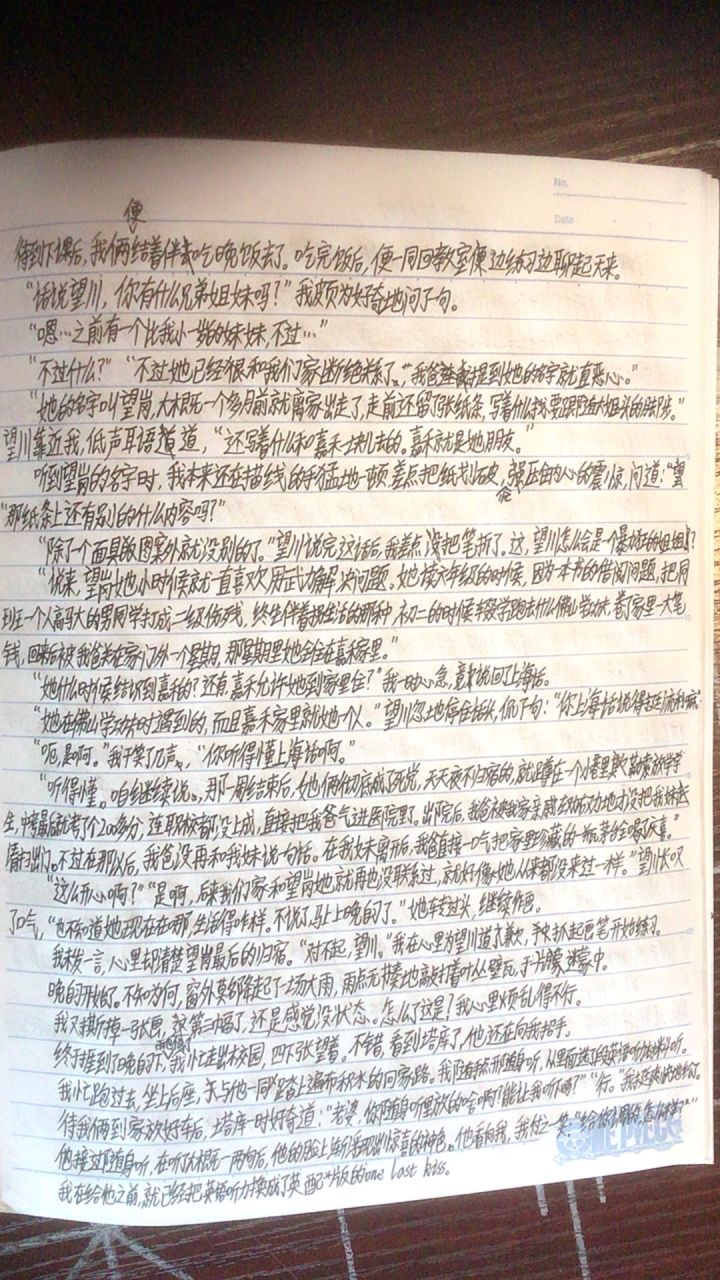 No.
Date
便
待到下课后，我俩结着伴去吃晚饭去了。吃完饭后，便一同回教室便边练习边聊起天来。
“话说望川，你有什么兄弟姐妹吗？”我颇为好奇地问了一句。
“嗯…之前有一个比我小一岁的妹妹，不过…”
“不过什么？”“不过她已经和我们家断绝关系了，我爸提到她的名字就直恶心。”
“她的名字叫望岗，大概一个多月前就离家出走了，走前还留了张纸条，写着什么要跟随大姐头的脚步。”
望川靠近我，低声耳语道，“还写着什么和嘉禾一块儿去的。嘉禾就是她朋友。”
听到望岗的名字时，我本来还在描线的手猛地一顿，差点把纸划破，强压住内心的震惊，问道：“望
“那纸条上还有别的什么内容吗？”
“除了一个面具的图案外就没别的了。”望川说完这话后，我差点没把笔折了。这，望川怎么会是一个暴力狂的姐姐？
“说来，望岗她小时候就一直喜欢用武力解决问题。她读六年级的时候，因为一本书的借阅问题，把同
班一个人高马大的男同学打成二级伤残，终生伴着拐生活的那种，初二的时候辍学跑去什么佛山学功夫，卷了家里一大笔
钱，回来后被我爸关在家门外一个星期，那星期里她全住在嘉禾家里。”
“她什么时候结识到嘉禾的？还有，嘉禾允许她到家里住？”我一时心急，竟说回了上海话。
“她在佛山学功夫时遇到的，而且嘉禾家里就她一人。”望川忽地停住话头，侃了句：“你上海话说得挺流利嘛”
“呃，是啊。”我干笑了几声，“你听得懂上海话啊。”
“听得懂。咱继续说，那一周结束后，她俩彻底成了死党，天天夜不归宿的，就蹲在一个小巷里欺负勒索放学学
生，中考最后就考了个200多分，连职校都没上成，直接把我爸气进医院了。出院后，我爸被我家亲戚劝才没把我妹
扫出门。不过在那以后，我爸没再和我妹说一句话。在我妹离开后，我爸直接一口气把家里珍藏的一瓶茅台全喝了庆喜。”
“这么开心啊？”“是啊，后来我们家和望岗她就再也没联系过，就好像她从来都没来过一样。”望川长叹
了口气，“也不知道她现在在哪，生活得咋样。不说了，马上上晚自了。”她转过头，继续作画。
我未发一言，心里却清楚望岗最后的归宿。“对不起，望川。”我在心里为望川道了歉，手抓起画笔开始练习。
晚自开始了。不知为何，窗外莫名降起了一场大雨，雨点无情地敲打着叶丛、壁瓦，于片朦胧迷雾中。
我又撕掉一张画，第三幅了，还是感觉没状态。怎么了这是？我心里烦乱得不行。
终于捱到了晚自下，我忙走出校园，四下张望着。不错，看到塔库了，他还在向我招手。
我忙跑过去，坐上后座，与他一同踏上遍布积水的回家路。我随手打开随身听，从里面选了段英语听力材料听。
待我俩到家放好车后，塔库一时好奇道：“老婆，你随身听里放的啥啊？能让我听听吗？”“行。”我
他接过随身听，在听了大概一两句后，他的脸上渐渐浮现出惊喜的神色。他看向我，我付之一笑
我在给他之前，就已经把英语听力换成了英配版的one last kiss。
ONE PIECE